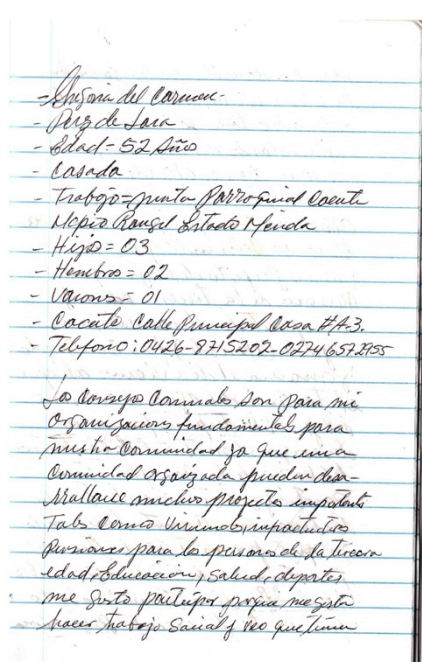 - del Carmen -
- Perz de Lara
- Edad - 52 Año
- Casada
- Trabajo = Junta Parroquial Cacute
Mcpio Rangel Estado Merida
- Hijos = 03
- Hembras = 02
- Varones = 01
- Cacute Calle Principal Casa # A-3.
- Telefono: 0426-8715202-02746572955
Los Consejos Comunales son para mi
organizaciones fundamentales para
nuestra Comunidad ya que en una
Comunidad organizada pueden desa-
rrallarse muchos projectos importante
Tales Como
pensiones para las personas de la tercera
edad, Educacion, Salud, deportes
me gusta participar porque me gusta
hacer trabajo Social y veo que tienen